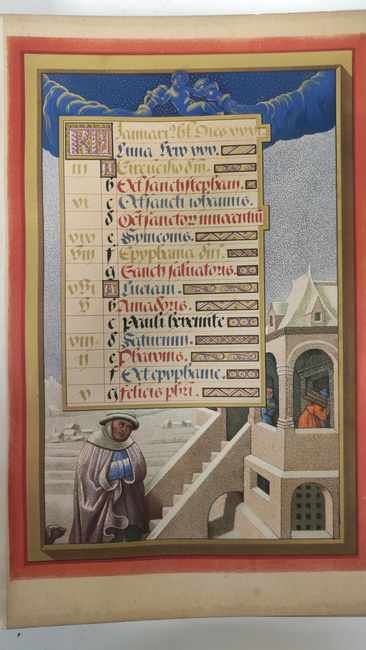 Januari' hbt Dies xxxi
Luna vero xxx.
iii A Circuncisio dni.
b Oct sancti stephani.
xi c Oct sancti iohannis.
d Oct sanctorum innocentium
xix e Symeonis.
viii f Epyphania dni.
g Sancti saluatoris.
xvi A Luciani.
v b
c Pauli heremite
xiii d Saturnini.
ii e
f Oct epyphanie.
x g felicis pbri.